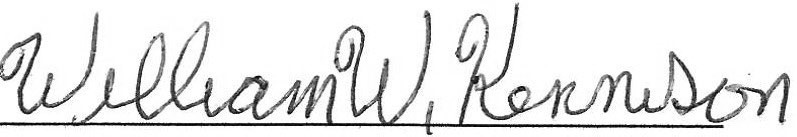 William W. Kennison